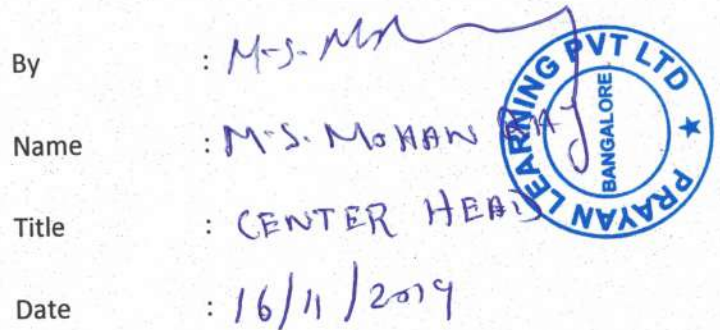 By : M.S. M
Name : M.S. MOHAN RAJ
Title : CENTER HEAD
Date : 16/11/2019
PRAYAN LEARNING PVT LTD ★
BANGALORE